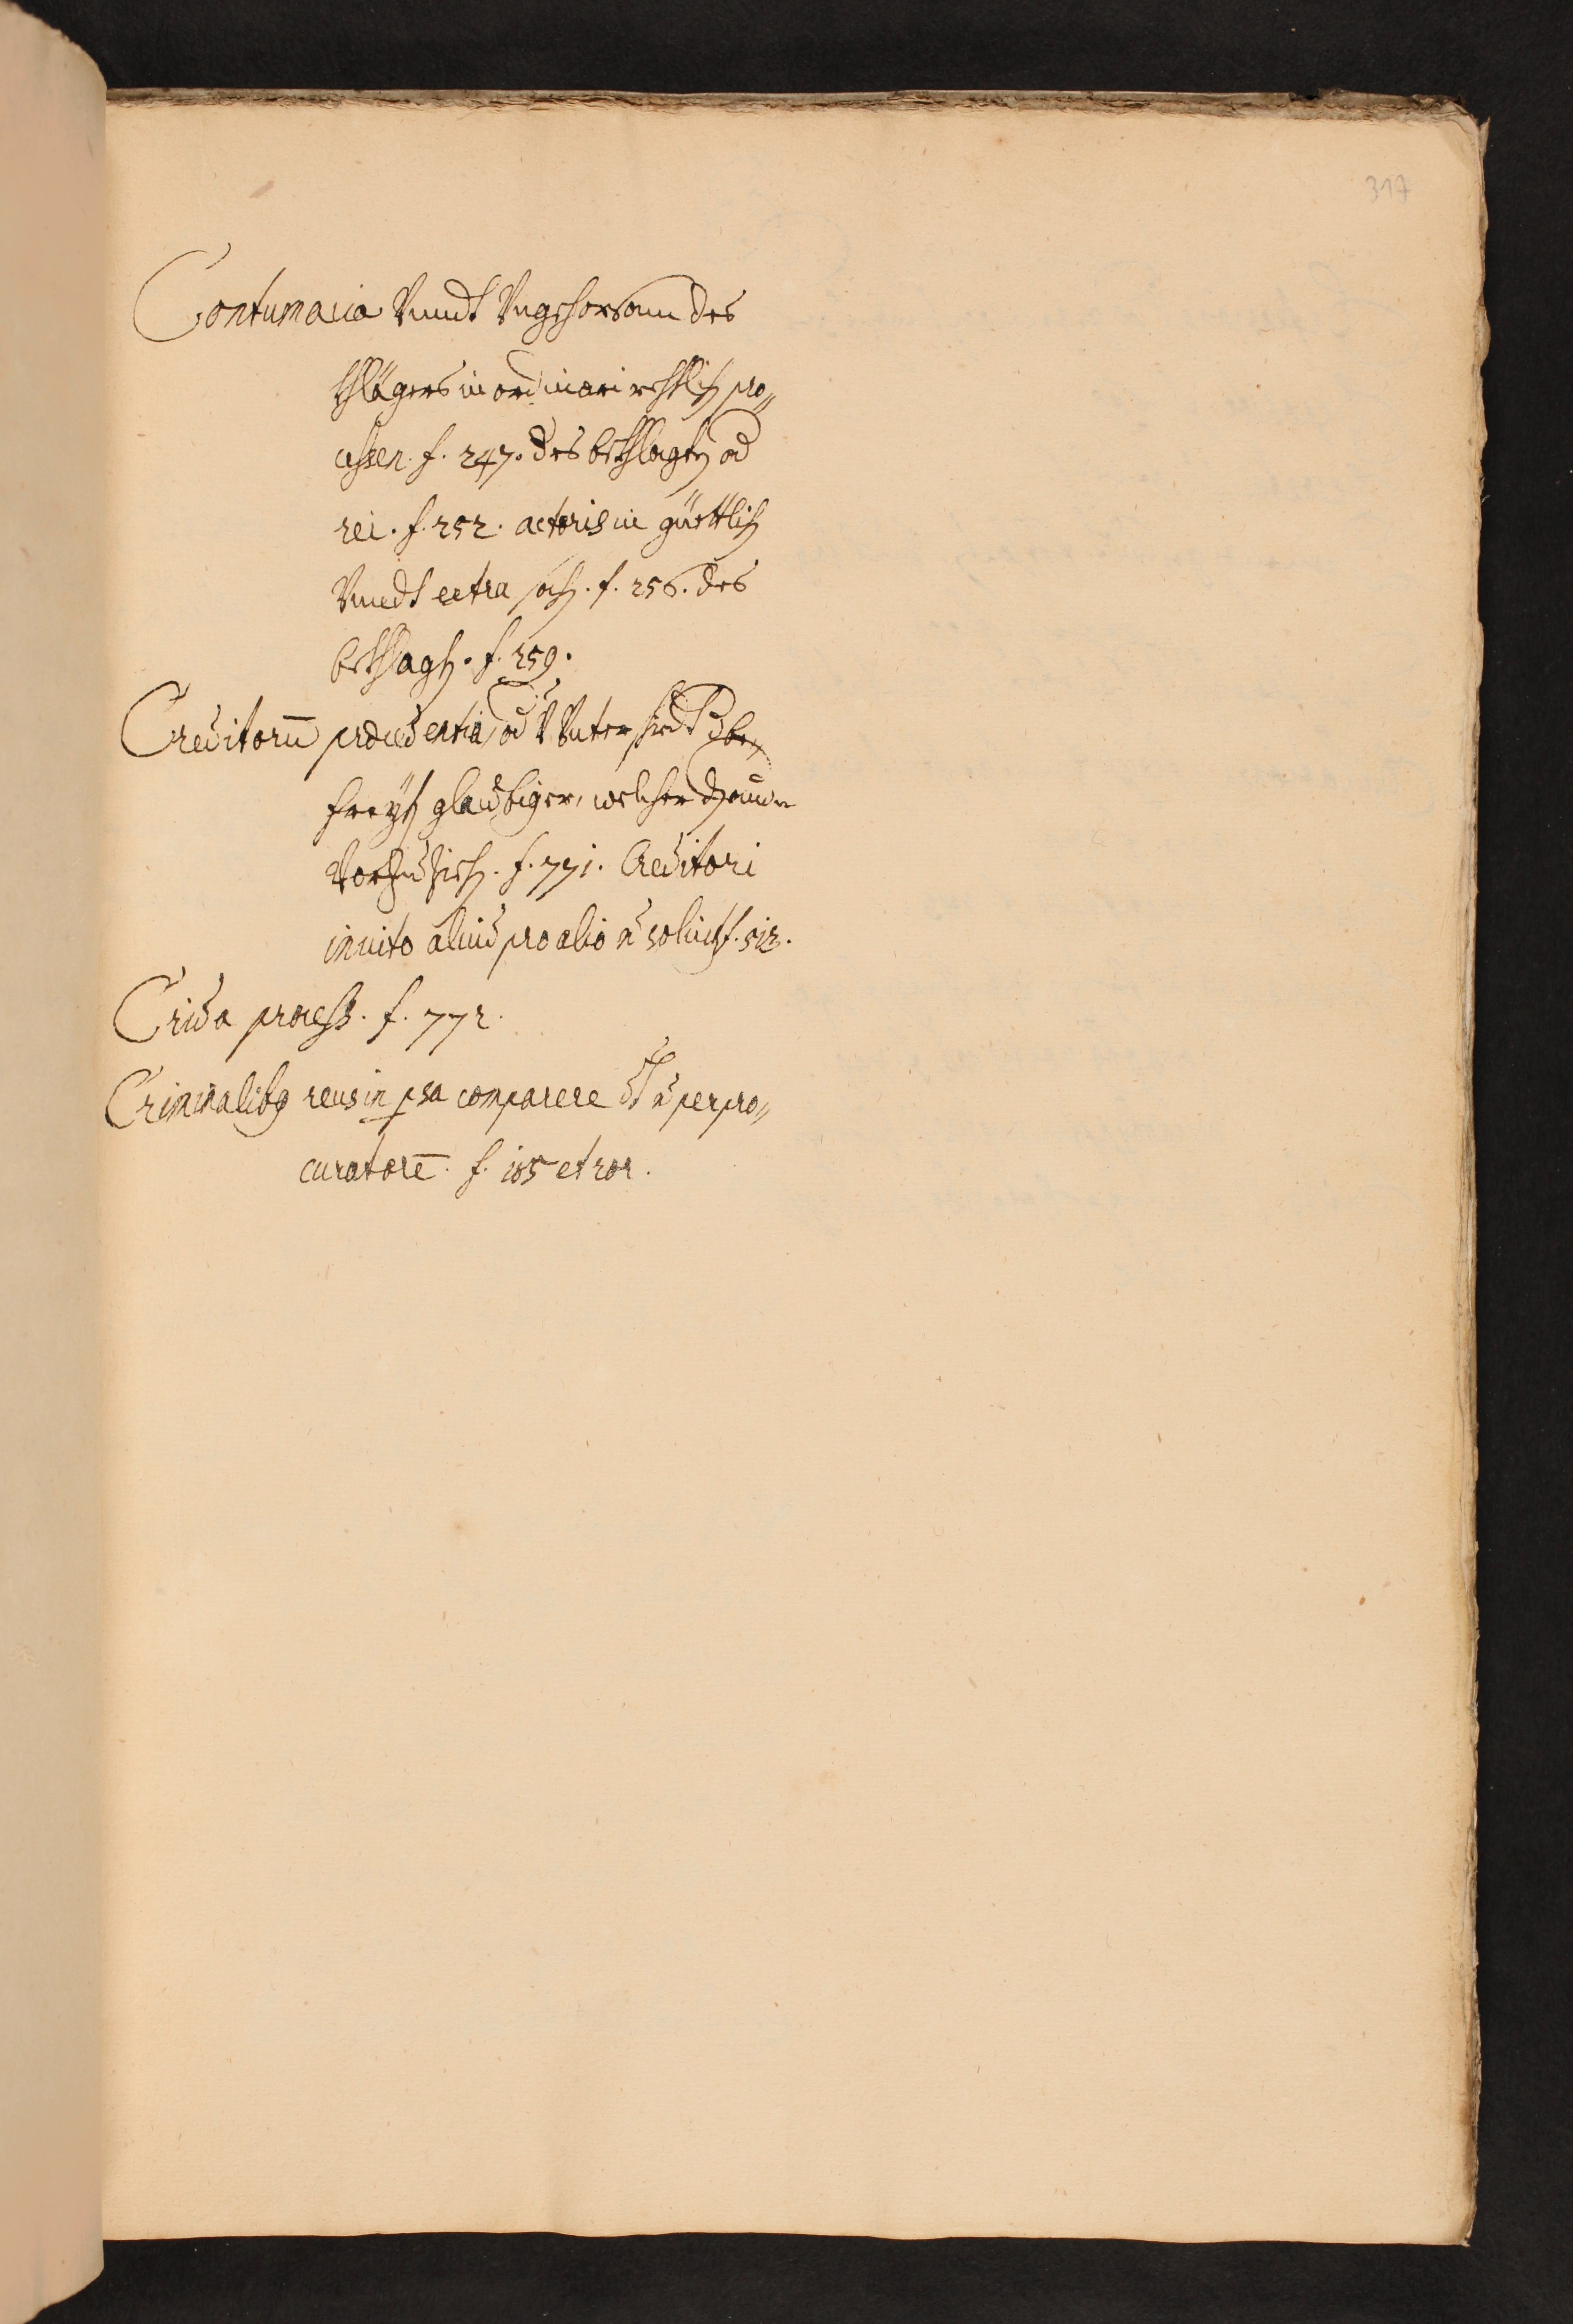 317
Contumacia Vnndt Vngehorsam des
khlägers in ordinari rechtlich pro„
cessen. f. 247. des bekhlagten od
rei. f. 252. actoris in güettlich
Vnndt extra sach. f. 256. des
bekhlagten. f. 259.
Creditorū praecedentia, od Vnterschidt
freÿen glaubiger, welcher dem andern
vorzuziehen. f. 771. Creditori
inuito aliud pro alio n̄ soluit f. 512.
Crida process. f. 772.
Criminalibq reus in psa comparere dt n̄ per pro„
curatorē. f. 185 et 202.